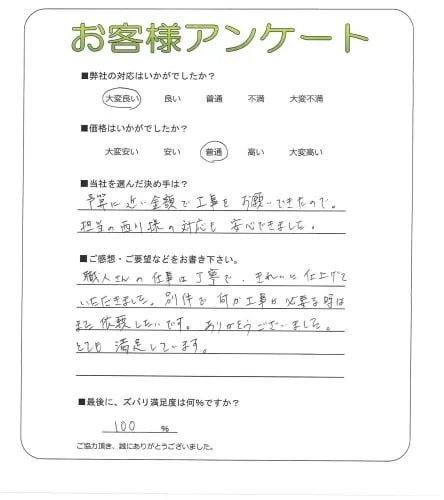 お客様アンケート
■弊社の対応はいかがでしたか?
大変良い 良い 普通 不満 大変不満
■価格はいかがでしたか?
大変安い 安い 普通 高い 大変高い
■当社を選んだ決め手は?
予算に近い金額で工事をお願いできたので。
担当の西川様の対応も安心できました。
■ご感想・ご要望などをお書き下さい。
職人さんの仕事は丁寧で、きれいに仕上げて
いただきました。別件で何か工事が必要な時は
また依頼したいです。ありがとうございました。
とても満足しています。
■最後に、ズバリ満足度は何%ですか?
100 %
ご協力頂き、誠にありがとうございました。